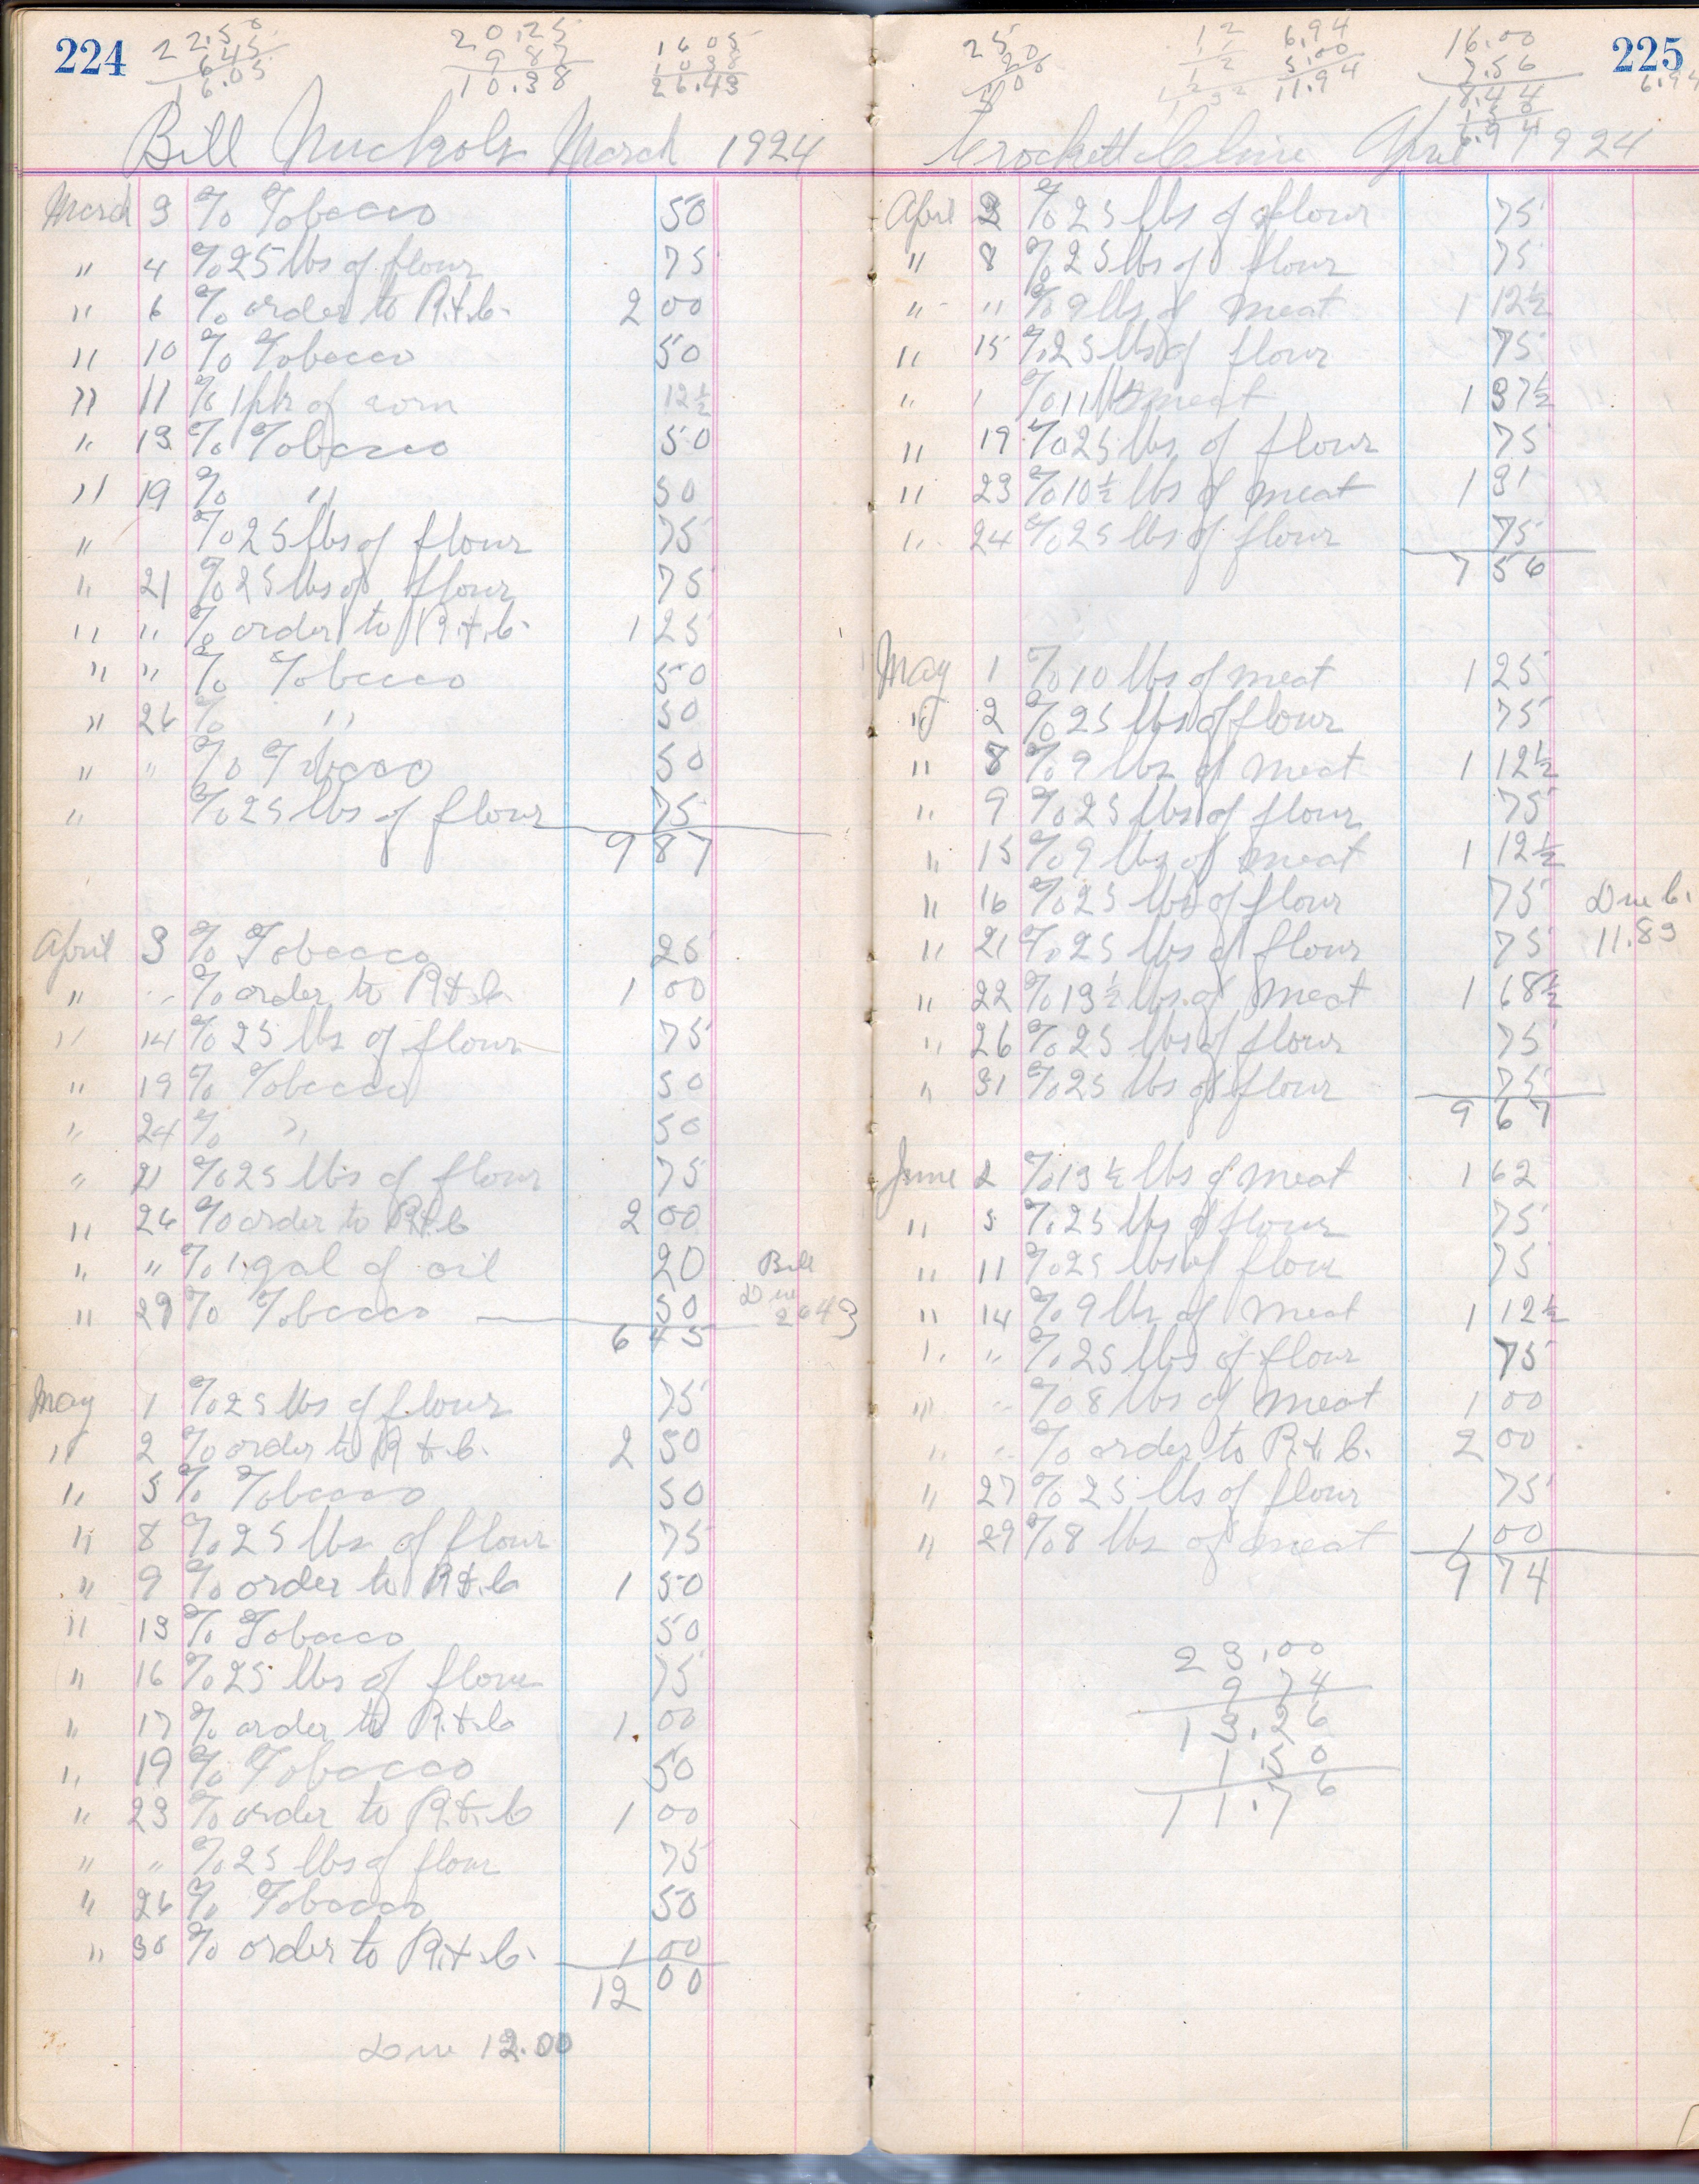 224
22.50
6 45
16.05
20.25
9 87
10.38
16 05
10 38
26.43
Bill Nuckols March 1924
March 3 % Tobacco 50
" 4 % 25 lbs of flour 75
" 6 % order to R.+.C. 2 00
" 10 % Tobacco 50
" 11 % 1 pk of corn 12½
" 13 % Tobacco 50
" 19 % " 50
" % 25 lbs of flour 75
" 21 % 25 lbs of flour 75
" " % order to R.+.C. 1 25
" " % Tobacco 50
" 26 % " 50
" " % Tobacco 50
" % 25 lbs of flour 75
9 87
April 3 % Tobacco 25
" " % order to R.+.C. 1 00
" 14 % 25 lbs of flour 75
" 19 % Tobacco 50
" 24 % " 50
" 21 % 25 lbs of flour 75
" 26 % order to R.+.C 2 00
" " % 1 gal of oil 20
Bill
Due
26 43
" 29 % Tobacco 50
6 45
May 1 % 25 lbs of flour 75
" 2 % order to R.+.C. 2 50
" 5 % Tobacco 50
" 8 % 25 lbs of flour 75
" 9 % order to R.+.C 1 50
" 13 % Tobacco 50
" 16 % 25 lbs of flour 75
" 17 % order to R.+.C 1.00
" 19 % Tobacco 50
" 23 % order to R.+.C 1 00
" " % 25 lbs of flour 75
" 26 % Tobacco 50
" 30 % order to R.+.C. 1 00
12 00
Due 12.00
225
25
20
12
12
6.94
5.00
11.94
16.00
7.56
8.44
1 50
6.94
6.94
Crockett Cline April 1924
April 2 % 25 lbs of flour 75
" 8 % 25 lbs of flour 75
" " % 9 lbs of meat 1 12½
" 15 % 25 lbs of flour 75
" " % 11 lbs meat 1 37½
" 19 % 25 lbs of flour 75
" 23 % 10½ lbs of meat 1 31
" 24 % 25 lbs of flour 75
7 56
May 1 % 10 lbs of meat 1 25
" 2 % 25 lbs of flour 75
" 8 % 9 lbs of meat 1 12½
" 9 % 25 lbs of flour 75
" 15 % 9 lbs of meat 1 12½
" 16 % 25 lbs of flour 75
Due C.
11.83
" 21 % 25 lbs of flour 75
" 22 % 13½ lbs of meat 1 68½
" 26 % 25 lbs of flour 75
" 31 % 25 lbs of flour 75
9 67
June 2 % 13½ lbs of meat 1 62
" 5 % 25 lbs of flour 75
" 11 % 25 lbs of flour 75
" 14 % 9 lbs of meat 1 12½
" " % 25 lbs of flour 75
" " % 8 lbs of meat 1 00
" " % order to R.+.C. 2 00
" 27 % 25 lbs of flour 75
" 29 % 8 lbs of meat 1 00
9 74
23.00
9 74
13.26
1 50
11.76